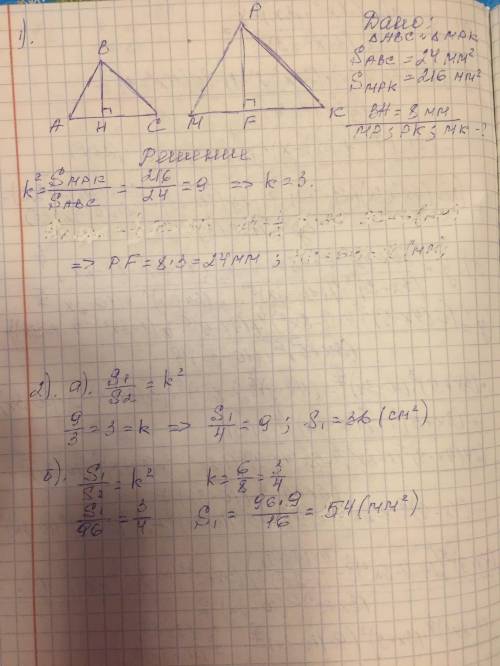 1).
B
A H C
P
M F K
Дано:
ΔABC ~ ΔMPK
S_ABC = 24 мм²
S_MPK = 216 мм²
BH = 8 мм
MP; PK; MK - ?
Решение
k² = S_MPK / S_ABC = 216/24 = 9 => k = 3.
=> PF = 8·3 = 24 мм ;
2). а). S₁/S₂ = k²
9/3 = 3 = k => S₁/4 = 9 ; S₁ = 36 (см²)
б). S₁/S₂ = k² k = 6/8 = 3/4
S₁/96 = 3/4 S₁ = 96·9/16 = 54 (мм²)